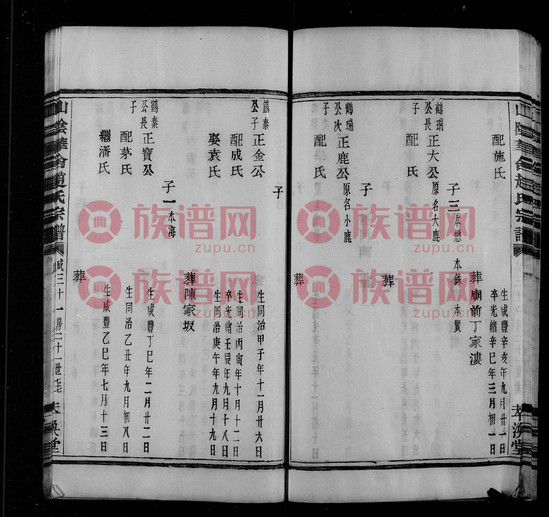 配施氏
生咸豐辛亥年九月廿二日
卒光緒辛巳年三月初一日
葬廟前丁家漊
子三 本懋 本鋒 本貴
鶴瑞公長子 正大公 原名大鹿
葬
鶴瑞公次子 正鹿公 原名小鹿
子
鶴泰公子 正金公
生同治甲子年十一月廿六日
配成氏
生同治丙寅年十月十二日
卒光緒壬辰年九月十八日
娶袁氏
生同治庚午年九月十九日
葬陳家坂
子一 本海
鶴秦公長子 正寶公
生咸豐丁巳年二月廿二日
配茅氏
生同治乙丑年九月初八日
繼潘氏
生咸豐乙巳年七月十三日
葬
山陰華舍趙氏宗譜
萃渙堂
族谱网
zupu.cn
族谱网
zupu.cn
族谱网
zupu.cn
族谱网
zupu.cn